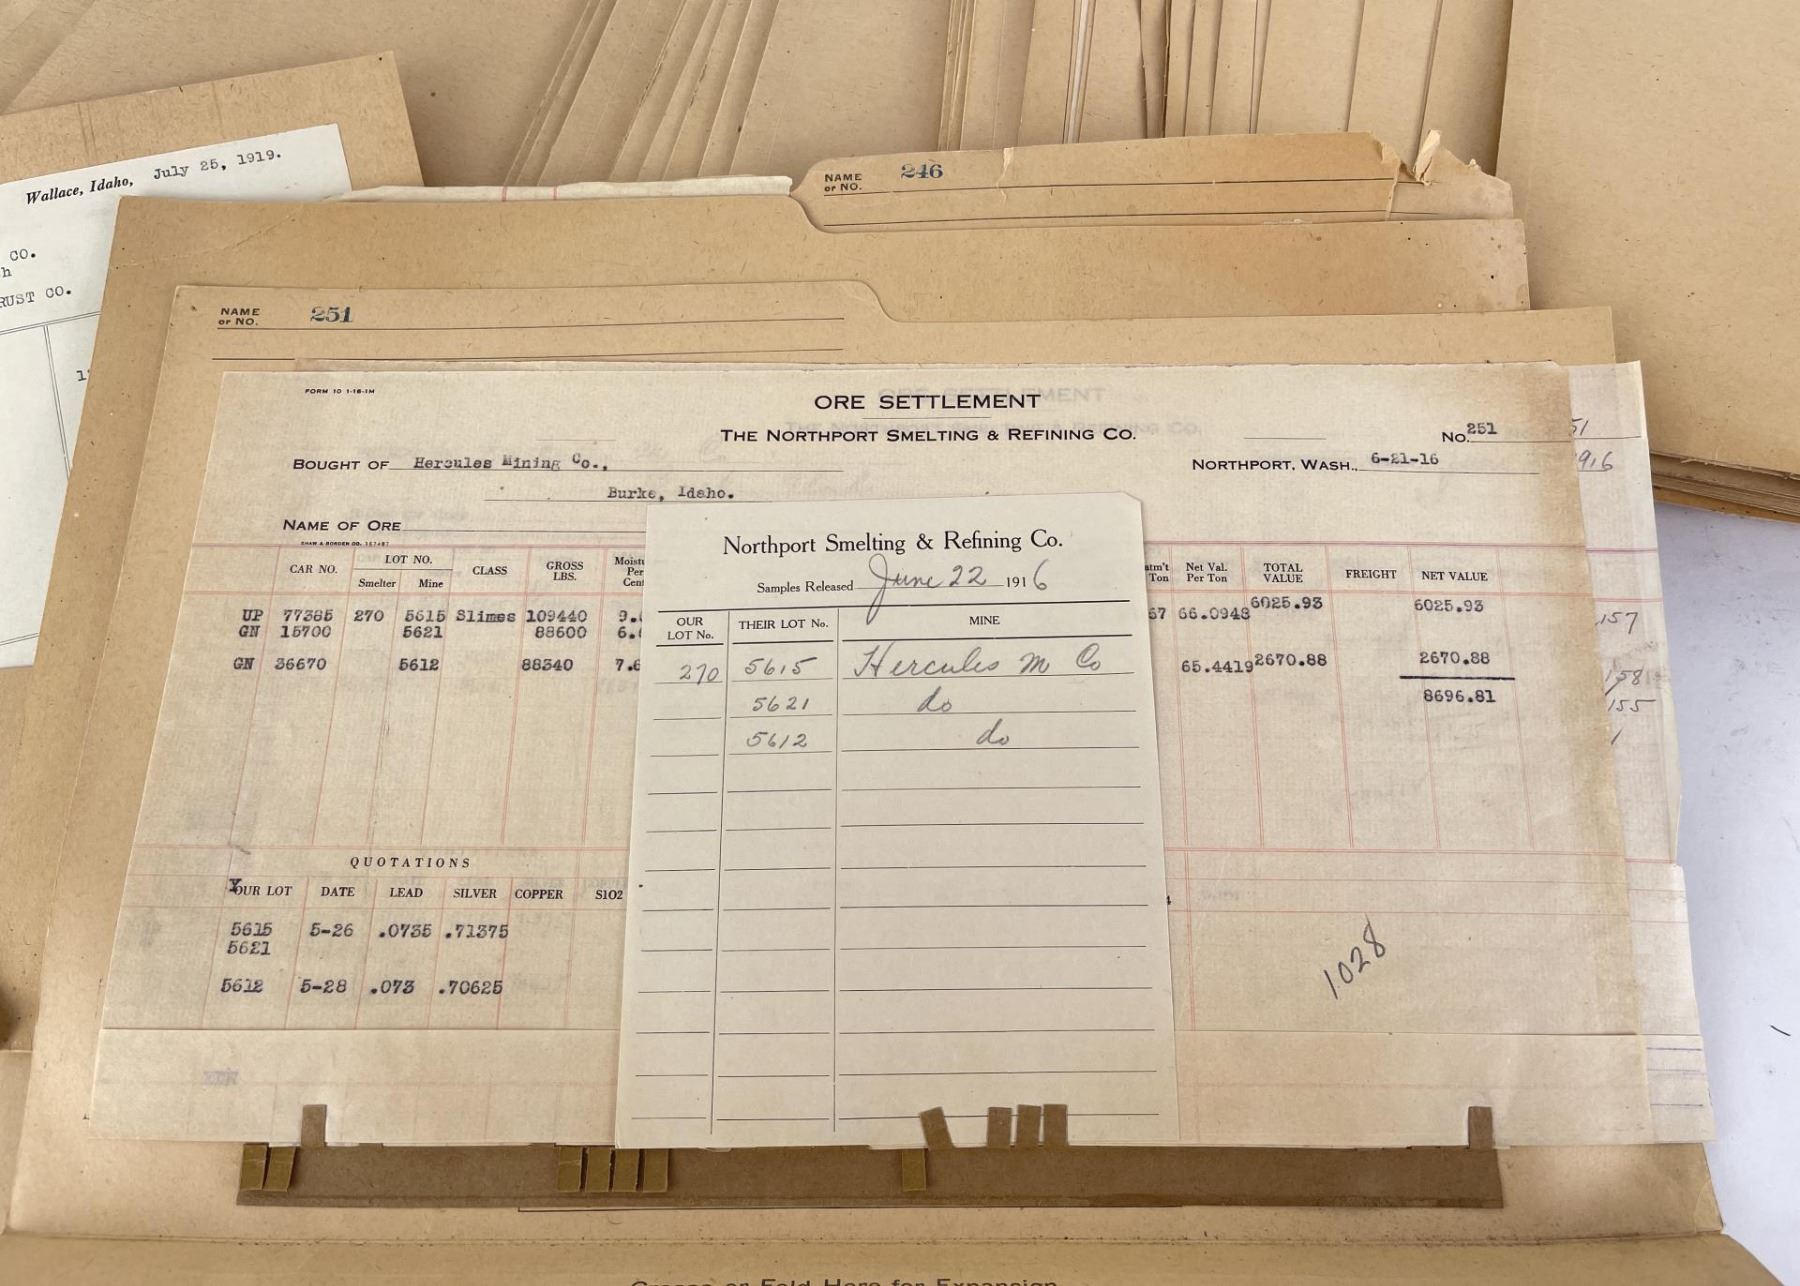 Wallace, Idaho, July 25, 1919.
CO.
h
RUST CO.
NAME or NO. 246
NAME or NO. 251
FORM 10 1-16-1M
ORE SETTLEMENT
THE NORTHPORT SMELTING & REFINING CO.
No. 251
BOUGHT OF Hercules Mining Co.,
NORTHPORT, WASH., 6-21-16
Burke, Idaho.
NAME OF ORE
SHAW & BORDEN CO. 157487
CAR NO. LOT NO. Smelter Mine CLASS GROSS LBS. Moistu Per Cent
atm't Ton Net Val. Per Ton TOTAL VALUE FREIGHT NET VALUE
UP 77385 270 5615 Slimes 109440 9. 67 66.0948 6025.93 6025.93
GN 15700 5621 88600 6.
GN 36670 5612 88340 7.6 65.4419 2670.88 2670.88
8696.81
QUOTATIONS
YOUR LOT DATE LEAD SILVER COPPER SIO2
5615 5-26 .0735 .71375
5621
5612 5-28 .073 .70625
1028
Northport Smelting & Refining Co.
Samples Released June 22 1916
OUR LOT No. THEIR LOT No. MINE
270 5615 Hercules M Co
5621 do
5612 do
51
916
157
158
155
Crease or Fold Here for Expansion